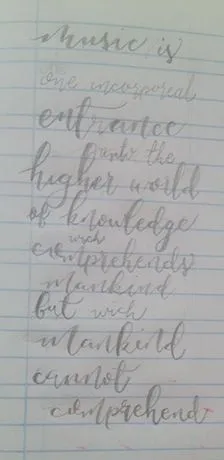 music is
one incorporeal
entrance
into the
higher world
of knowledge
wich
comprehends
mankind
but wich
mankind
cannot
comprehend